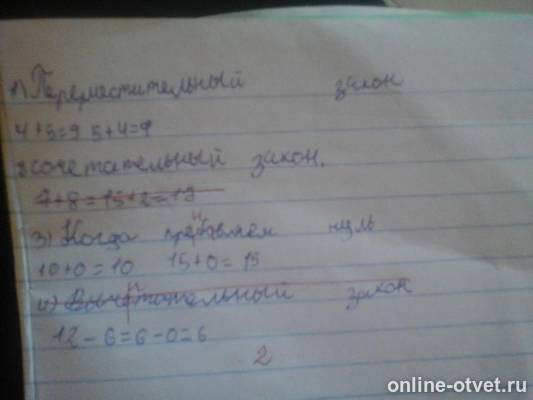 1) Переместительный закон
4+5=9 5+4=9
2) сочетательный закон.
7+8=15+2=17
3) Когда прибавляем нуль
10+0=10 15+0=15
4) Вычитательный закон
12-6=6-0=6
2
online-otvet.ru